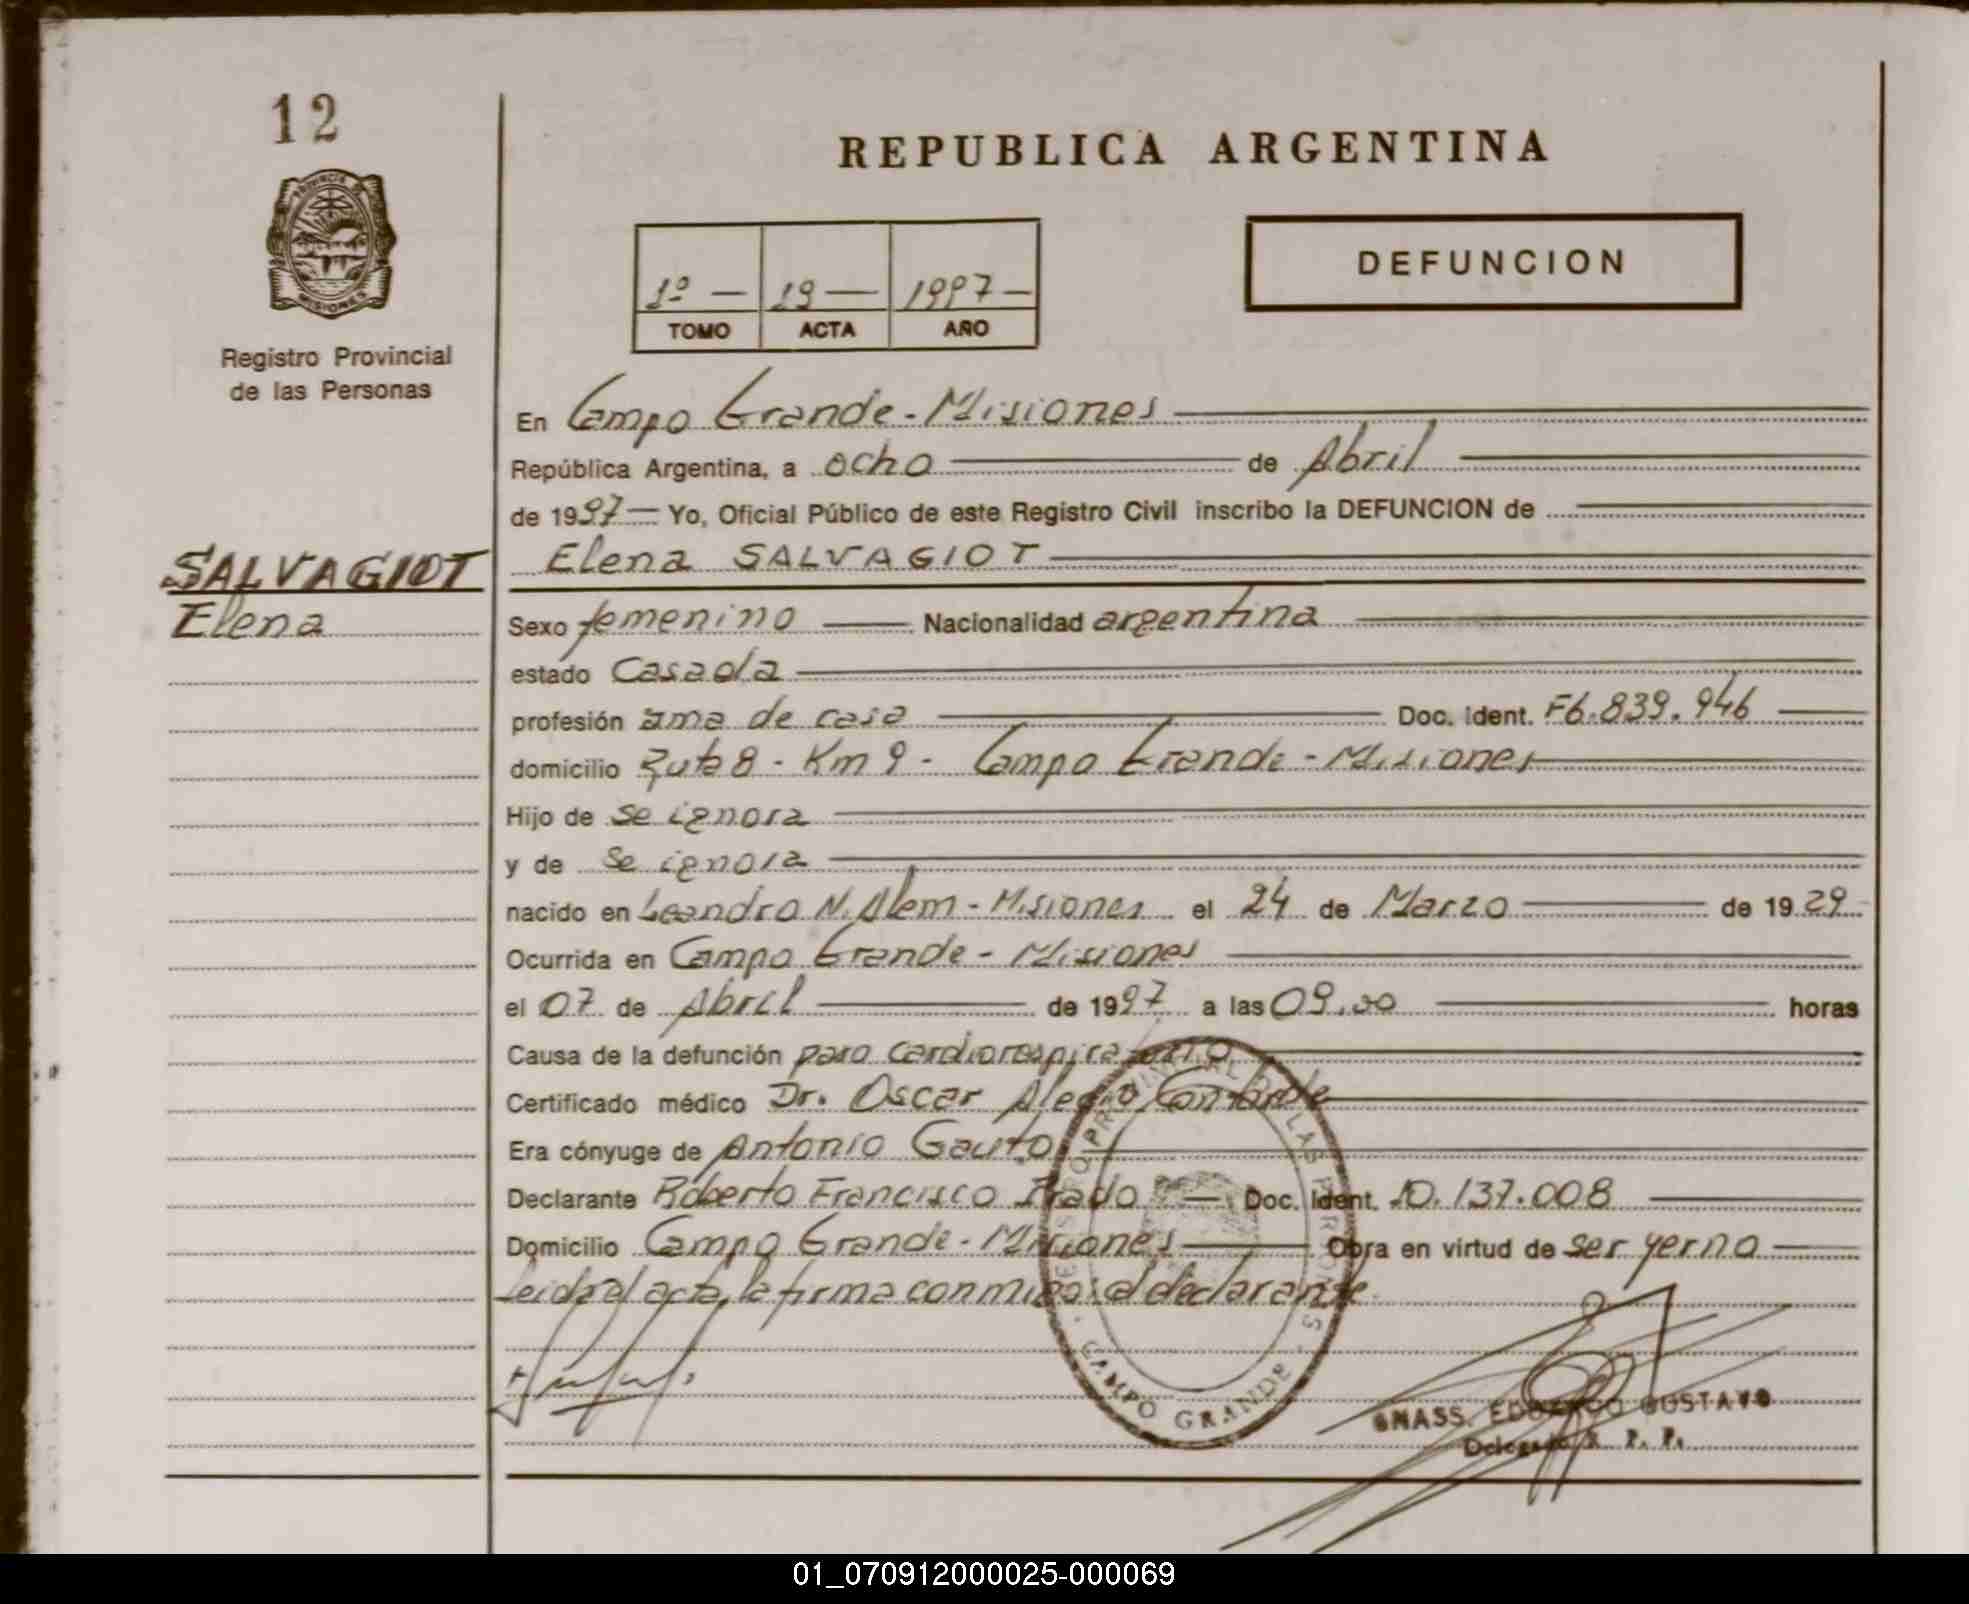 12
PROVINCIA DE
MISIONES
Registro Provincial
de las Personas
SALVAGIOT
Elena
REPUBLICA ARGENTINA
1º — 19 — 1997 —
TOMO ACTA AÑO
DEFUNCION
En Campo Grande - Misiones
República Argentina, a ocho de Abril
de 1997 — Yo, Oficial Público de este Registro Civil inscribo la DEFUNCION de
Elena SALVAGIOT
Sexo femenino Nacionalidad argentina
estado Casada
profesión ama de casa Doc. Ident. F6.839.946
domicilio Ruta 8 - Km 9 - Campo Grande - Misiones
Hijo de se ignora
y de se ignora
nacido en Leandro N. Alem - Misiones el 24 de Marzo de 1929
Ocurrida en Campo Grande - Misiones
el 07 de Abril de 1997 a las 09,00 horas
Causa de la defunción paro cardiorespiratorio
Certificado médico Dr. Oscar Alegro
Era cónyuge de Antonio Gauto
Declarante Roberto Francisco Prado Doc. Ident. 10.137.008
Domicilio Campo Grande - Misiones Obra en virtud de ser yerno
Leida el acta, la firma conmigo: el declarante.
REGISTRO PROVINCIAL DE LAS PERSONAS
CAMPO GRANDE
GNASS. EDUARDO GUSTAVO
Delegado R. P. P.
01_070912000025-000069